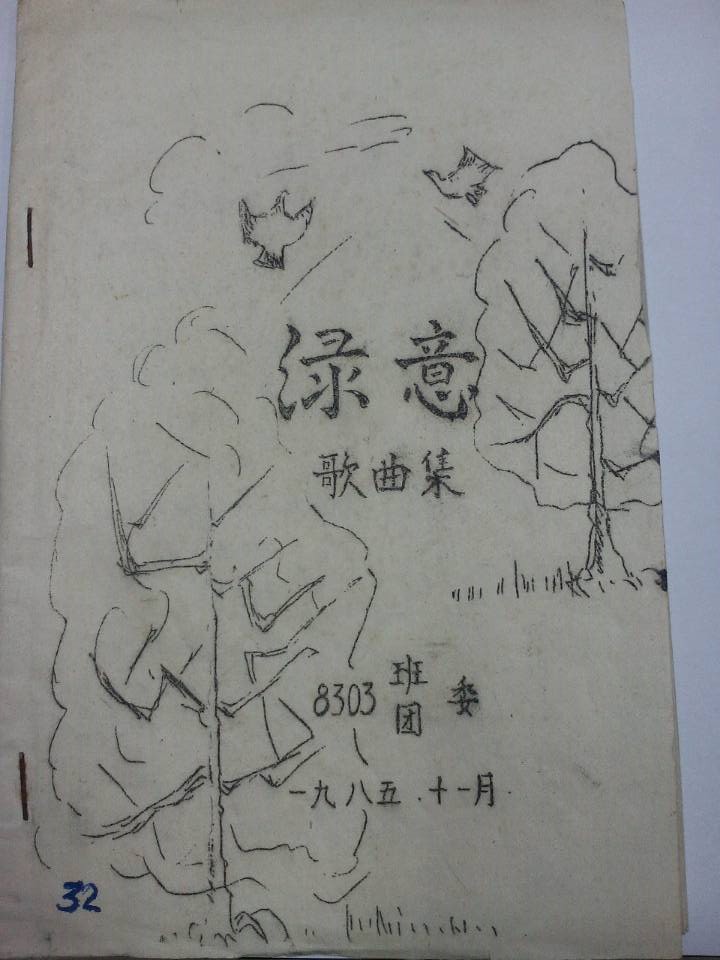 渌意
歌曲集
8303 班团委
一九八五.十一月
32